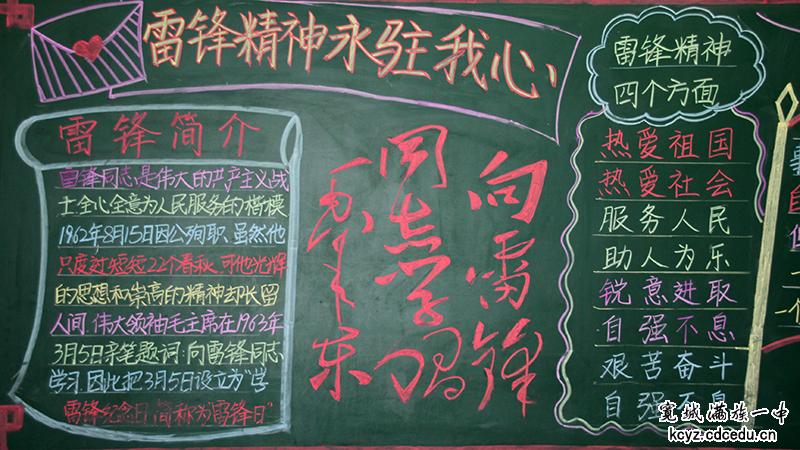 雷锋精神永驻我心
雷锋简介
雷锋同志是伟大的共产主义战
士全心全意为人民服务的楷模
1962年8月15日因公殉职,虽然他
只度过短短22个春秋,可他光辉
的思想和崇高的精神却长留
人间,伟大领袖毛主席在1963年
3月5日亲笔题词:向雷锋同志
学习,因此把3月5日设立为"学
雷锋纪念日,简称为"雷锋日"
向雷锋
同志学习
毛泽东
雷锋精神
四个方面
热爱祖国
热爱社会
服务人民
助人为乐
锐意进取
自强不息
艰苦奋斗
自强不息
宽城满族一中
kcyz.cdcedu.cn